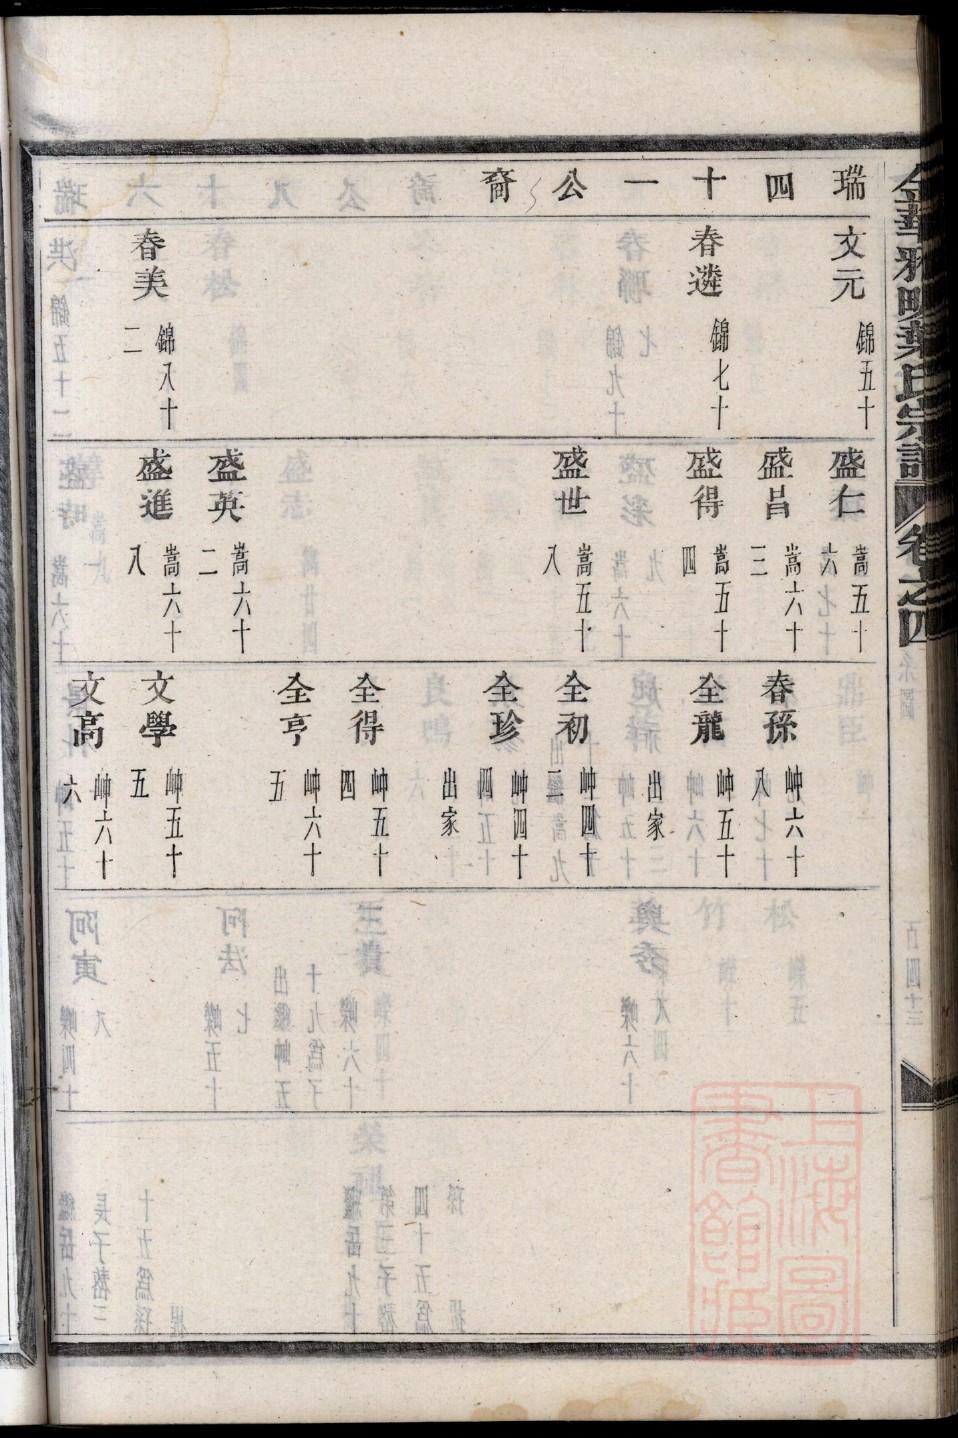 金華雅畈葉氏宗譜 卷之四
瑞四十一公裔
文元 錦五十
春遴 錦七十
春美 錦八十二
盛仁 嵩五十六
盛昌 嵩六十三
盛得 嵩五十四
盛世 嵩五十八
盛英 嵩六十二
盛進 嵩六十八
春孫 岫六十八
全龍 岫五十 出家
全初 岫四十二
全珍 岫四十四 出家
全得 岫五十四
全亨 岫六十五
文學 岫五十五
文高 岫六十六
上海圖書館藏